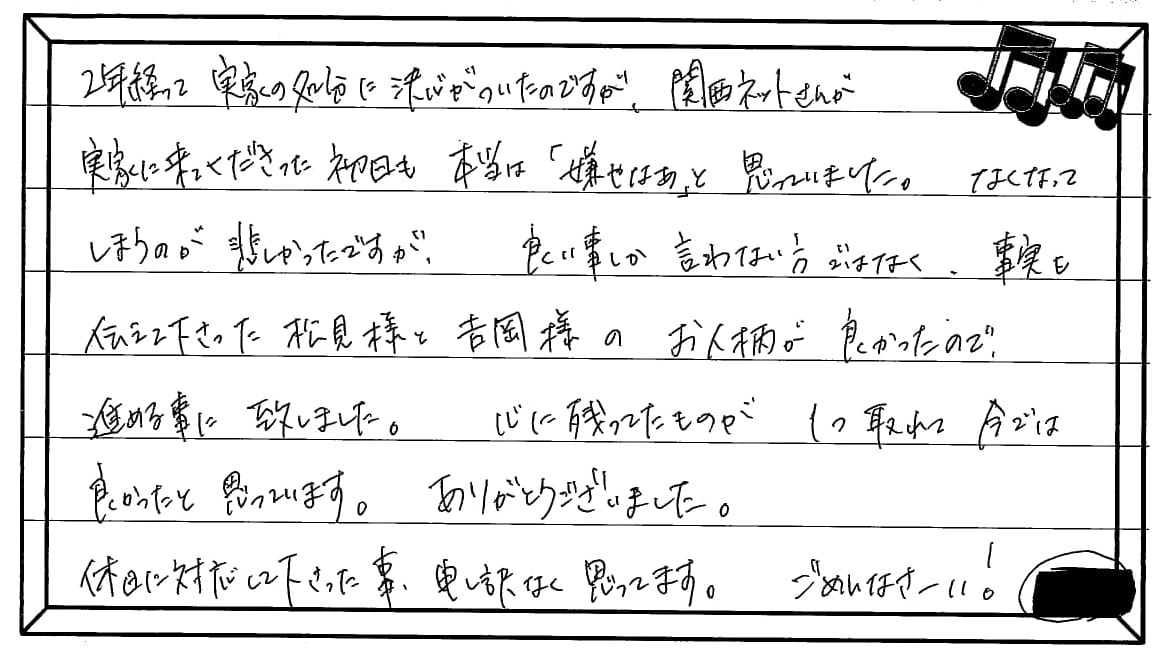 2年経って 実家の処分に決心がついたのですが、関西ネットさんが
実家に来てくださった初日も 本当は「嫌やなぁ」と 思っていました。 なくなって
しまうのが 悲しかったですが、 良い事しか 言わない方ではなく、事実を
伝えて下さった 松見様と 吉岡様の お人柄が 良かったので、
進める事に 致しました。 心に残ってたものが 1つ 取れて 今では
良かったと 思っています。 ありがとうございました。
休日に対応して下さった事、申し訳なく 思ってます。 ごめんなさーい!。